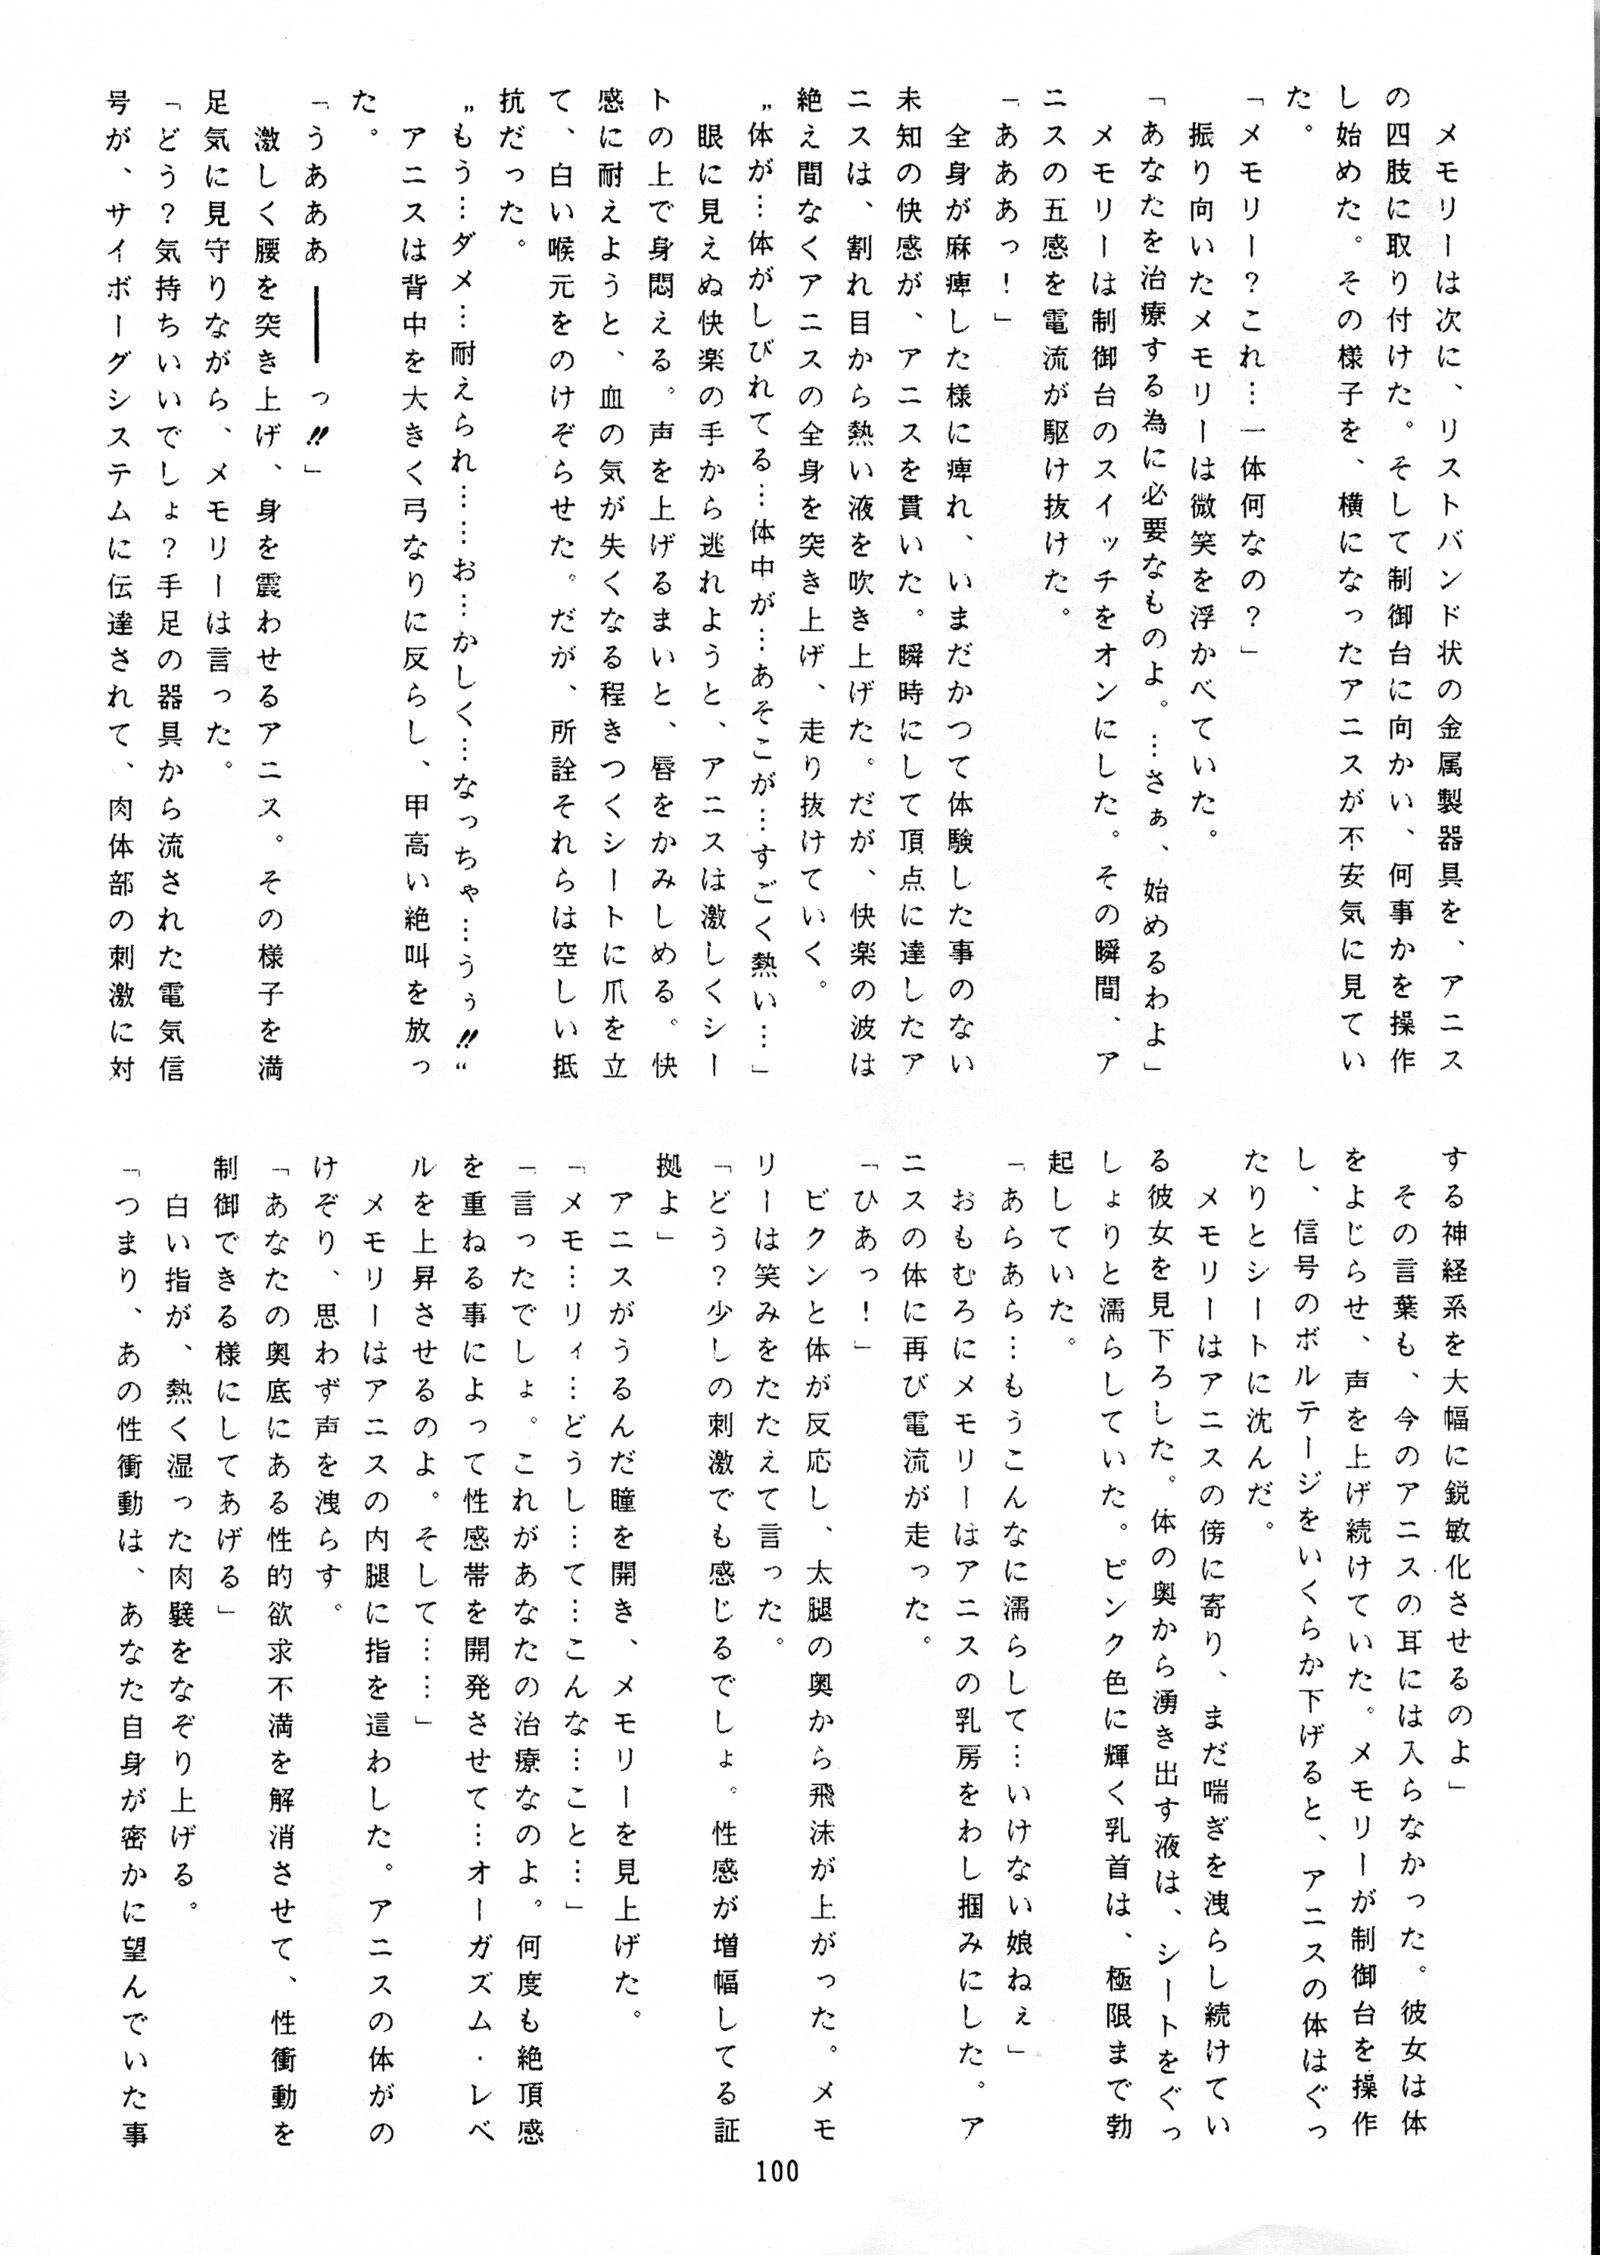 メモリーは次に、リストバンド状の金属製器具を、アニス
の四肢に取り付けた。そして制御台に向かい、何事かを操作
し始めた。その様子を、横になったアニスが不安気に見てい
た。
「メモリー？これ…一体何なの？」
　振り向いたメモリーは微笑を浮かべていた。
「あなたを治療する為に必要なものよ。…さぁ、始めるわよ」
　メモリーは制御台のスイッチをオンにした。その瞬間、ア
ニスの五感を電流が駆け抜けた。
「あああっ！」
　全身が麻痺した様に痺れ、いまだかつて体験した事のない
未知の快感が、アニスを貫いた。瞬時にして頂点に達したア
ニスは、割れ目から熱い液を吹き上げた。だが、快楽の波は
絶え間なくアニスの全身を突き上げ、走り抜けていく。
〝体が…体がしびれてる…体中が…あそこが…すごく熱い…」
　眼に見えぬ快楽の手から逃れようと、アニスは激しくシー
トの上で身悶える。声を上げるまいと、唇をかみしめる。快
感に耐えようと、血の気が失くなる程きつくシートに爪を立
て、白い喉元をのけぞらせた。だが、所詮それらは空しい抵
抗だった。
〝もう…ダメ…耐えられ……お…かしく…なっちゃ…うぅ!!〟
　アニスは背中を大きく弓なりに反らし、甲高い絶叫を放っ
た。
「うあああ━━っ!!」
　激しく腰を突き上げ、身を震わせるアニス。その様子を満
足気に見守りながら、メモリーは言った。
「どう？気持ちいいでしょ？手足の器具から流された電気信
号が、サイボーグシステムに伝達されて、肉体部の刺激に対
する神経系を大幅に鋭敏化させるのよ」
　その言葉も、今のアニスの耳には入らなかった。彼女は体
をよじらせ、声を上げ続けていた。メモリーが制御台を操作
し、信号のボルテージをいくらか下げると、アニスの体はぐっ
たりとシートに沈んだ。
　メモリーはアニスの傍に寄り、まだ喘ぎを洩らし続けてい
る彼女を見下ろした。体の奥から湧き出す液は、シートをぐっ
しょりと濡らしていた。ピンク色に輝く乳首は、極限まで勃
起していた。
「あらあら…もうこんなに濡らして…いけない娘ねぇ」
　おもむろにメモリーはアニスの乳房をわし掴みにした。ア
ニスの体に再び電流が走った。
「ひあっ！」
　ビクンと体が反応し、太腿の奥から飛沫が上がった。メモ
リーは笑みをたたえて言った。
「どう？少しの刺激でも感じるでしょ。性感が増幅してる証
拠よ」
　アニスがうるんだ瞳を開き、メモリーを見上げた。
「メモ…リィ…どうし…て…こんな…こと…」
「言ったでしょ。これがあなたの治療なのよ。何度も絶頂感
を重ねる事によって性感帯を開発させて…オーガズム・レベ
ルを上昇させるのよ。そして……」
　メモリーはアニスの内腿に指を這わした。アニスの体がの
けぞり、思わず声を洩らす。
「あなたの奥底にある性的欲求不満を解消させて、性衝動を
制御できる様にしてあげる」
　白い指が、熱く湿った肉襞をなぞり上げる。
「つまり、あの性衝動は、あなた自身が密かに望んでいた事
100